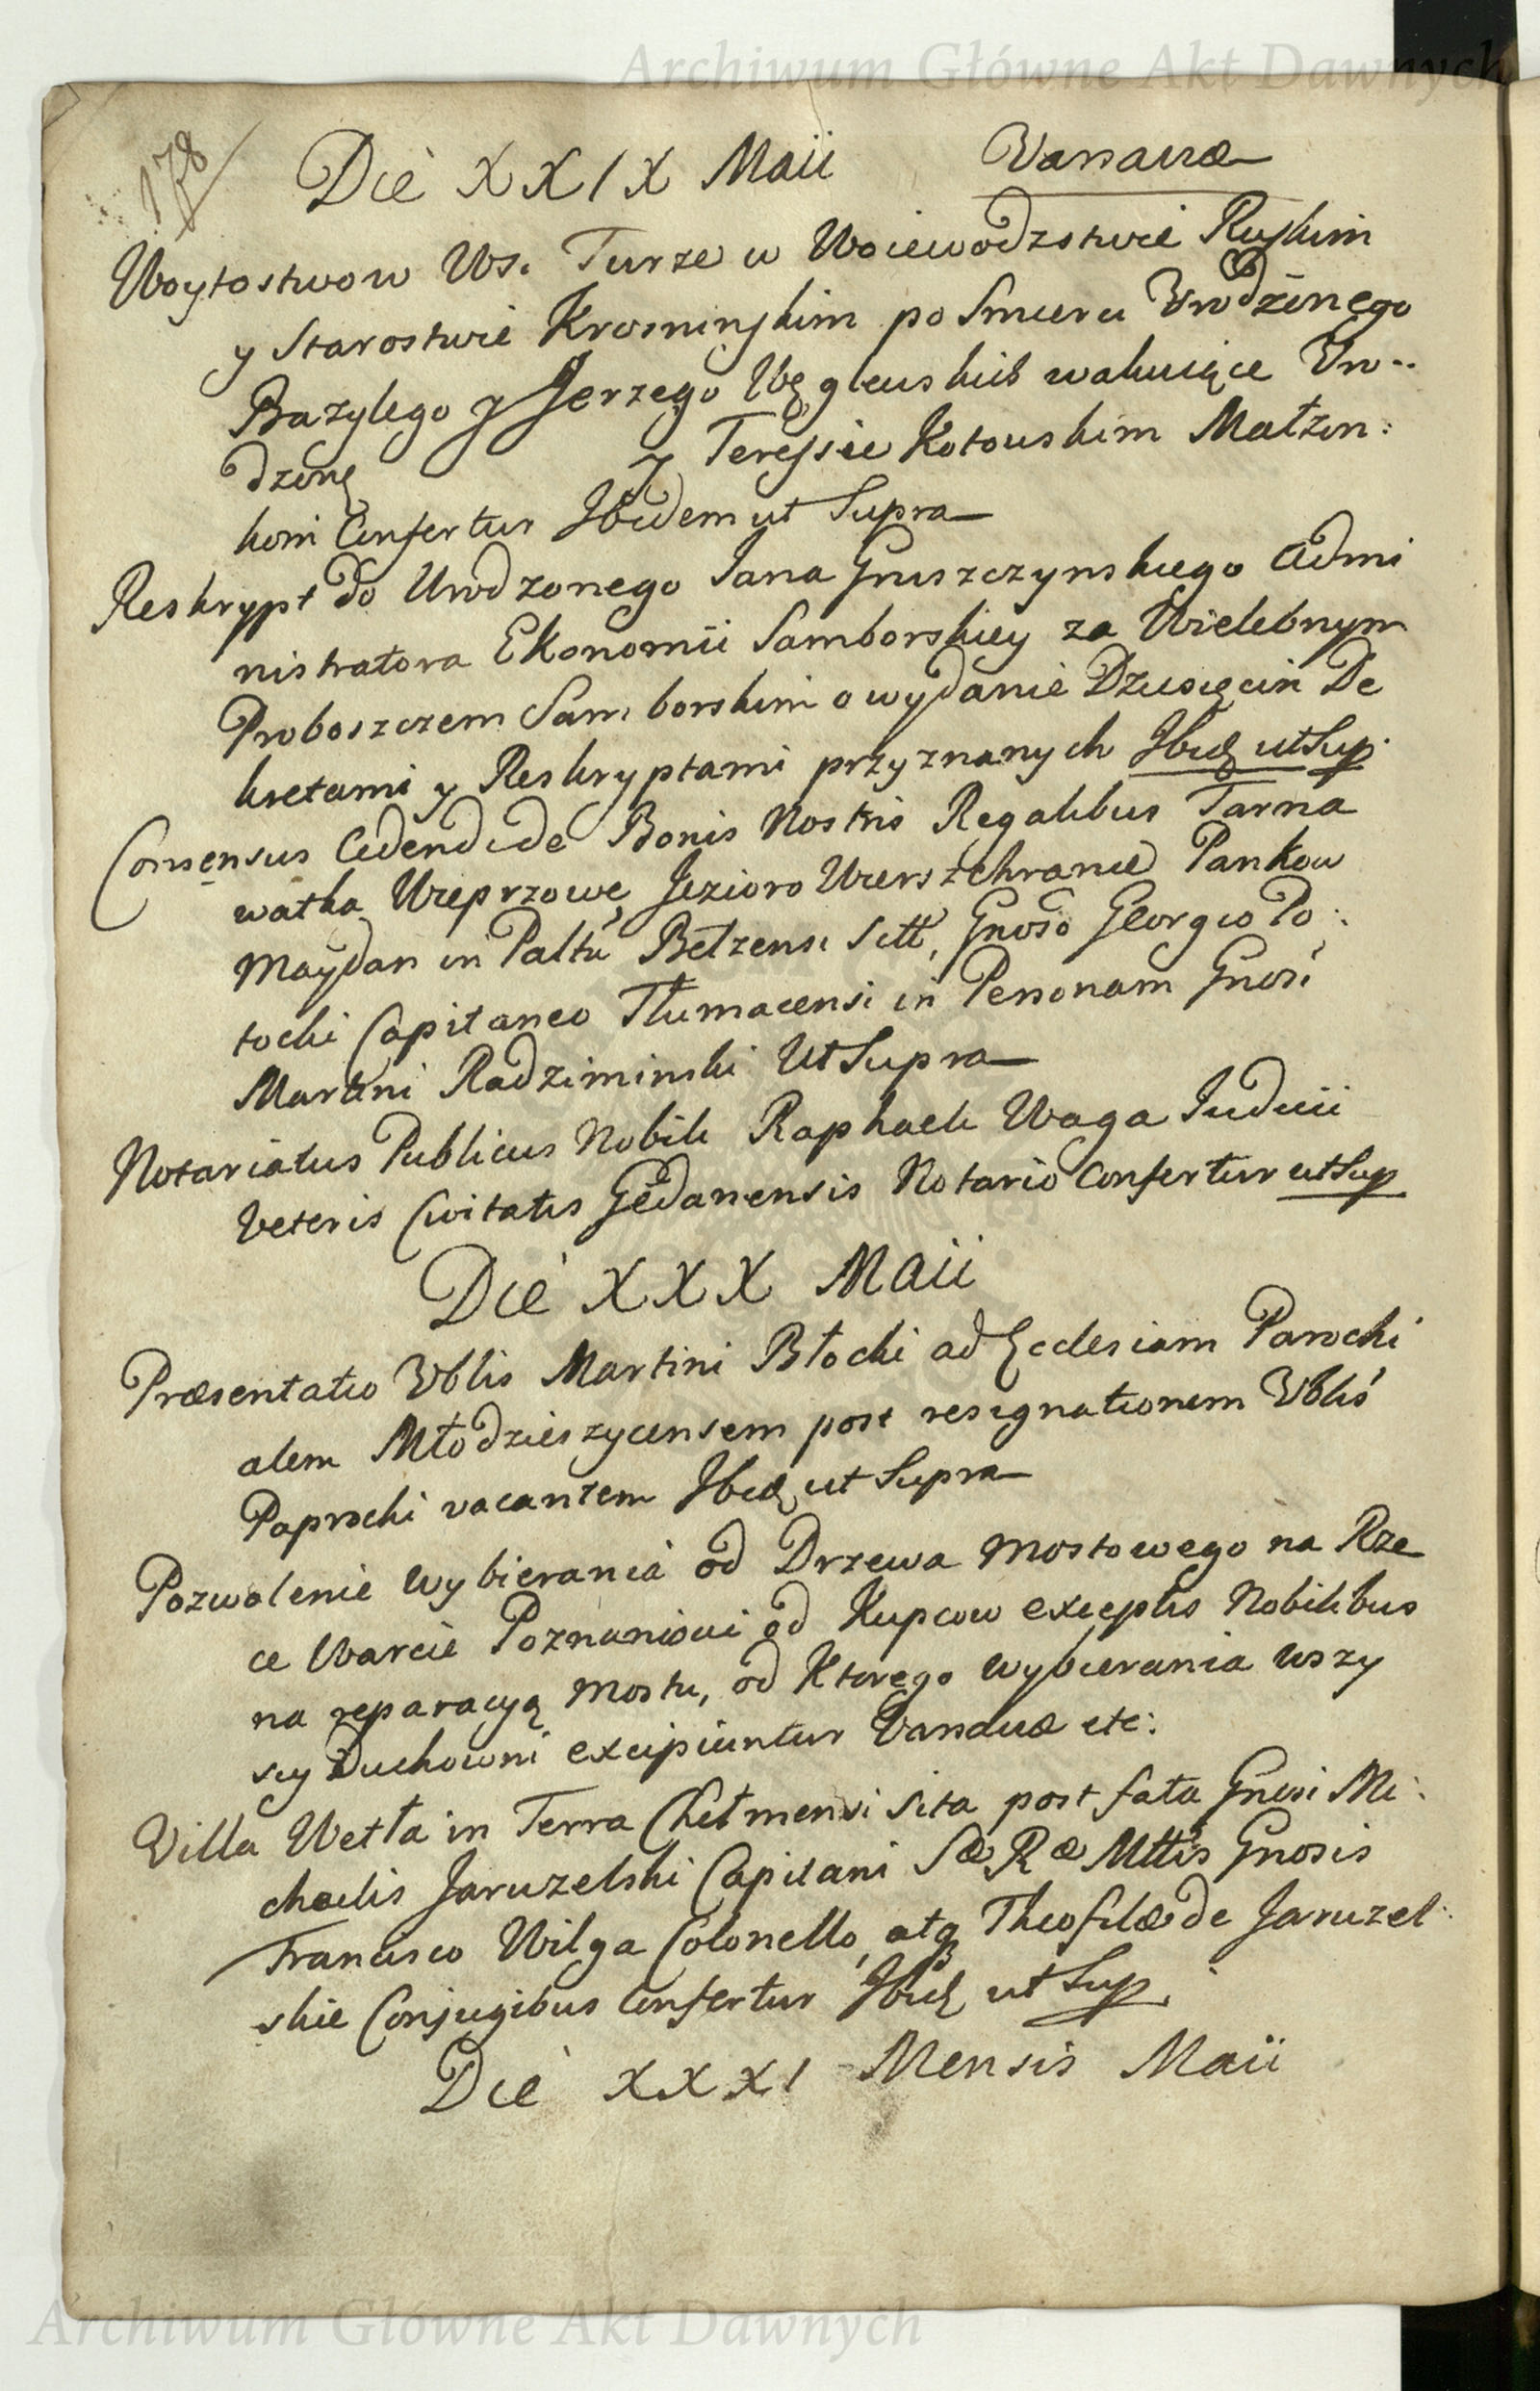 Archiwum Główne Akt Dawnych
178
Die XXIX Maii Varsaviæ
Woytostwow Ws. Turze w Woiewodzstwie Ruskim
y Starostwie Krosninskim po Smierci Urodzonego
Bazylego y Jerzego Węgleuskich wakuiące Uro-
dzone y Teressie Kotouskim Małżon:
kom Confertur Ibidem ut Supra
Reskrypt do Urodzonego Jana Gruszczynskiego Admi
nistratora Ekonomii Samborskiey za Wielebnym
Proboszczem Samborskim o wydanie Dziesięcin De
kretami y Reskryptami przyznanych Ibid ut Sup.
Consensus Cedendi de Bonis Nostris Regalibus Tarna
watka Wieprzowe Jezioro Wierszchranie Pankow
Maydan in Paltu Belzensi Sitt, Gnoso Georgio Po:
tocki Capitaneo Tłumacensi in Personam Gnosi
Martini Radziminski Ut Supra
Notariatus Publicus Nobili Raphaeli Waga Iudicii
Veteris Civitatis Gedanensis Notario Confertur ut Sup
Die XXX Maii
Præsentatio Vblis Martini Błocki ad Ecclesiam Parochi
alem Młodzieszycensem post resignationem Vblis
Paprocki vacantem Ibid ut Supra
Pozwolenie wybierania od Drzewa mostowego na Rze
ce Warcie Poznaniowi od Kupcow exceptis Nobilibus
na reparacyą mostu, od Ktorego wybierania wszy
scy Duchowni excipiuntur Varsaviæ etc:
Villa Wetła in Terra Chełmensi sita post fata Gnosi Mi:
chaelis Jaruzelski Capitani Sæ Ræ Mttis Gnosis
Francisco Wilga Colonello, atq Theofilæ de Jaruzel:
skie Conjugibus Confertur Ibid ut Sup.
Die XXXI Mensis Maii
Archiwum Główne Akt Dawnych